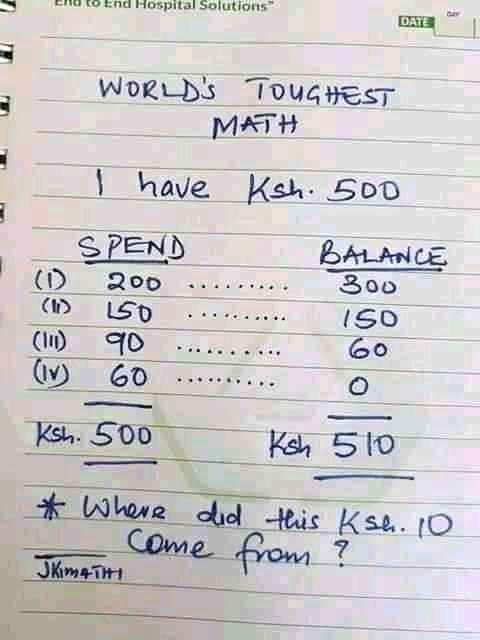 End to End Hospital Solutions"
DATE DAY
WORLD'S TOUGHEST
MATH
I have Ksh. 500
SPEND BALANCE
(I) 200 ......... 300
(II) 150 .......... 150
(III) 90 .......... 60
(IV) 60 .......... 0
Ksh. 500 Ksh 510
* Where did this Ksh. 10
Come from?
JKIMATHI